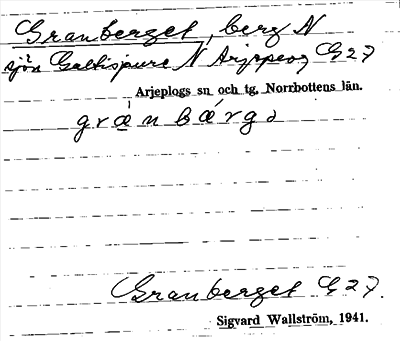 Granberget, berg N
sjön Galtispure N Arjepeog G 27
Arjeplogs sn och tg, Norrbottens län.
græ̀n bǽrgə
Granberget G 27.
Sigvard Wallström, 1941.